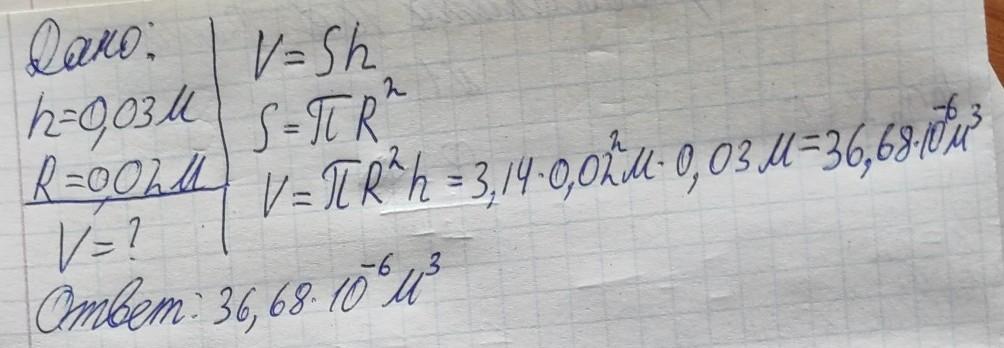 Дано:
h=0,03м
R=0,02м
V=?
V=Sh
S=πR²
V=πR²h=3,14·0,02²м·0,03м=36,68·10⁻⁶м³
Ответ: 36,68·10⁻⁶м³